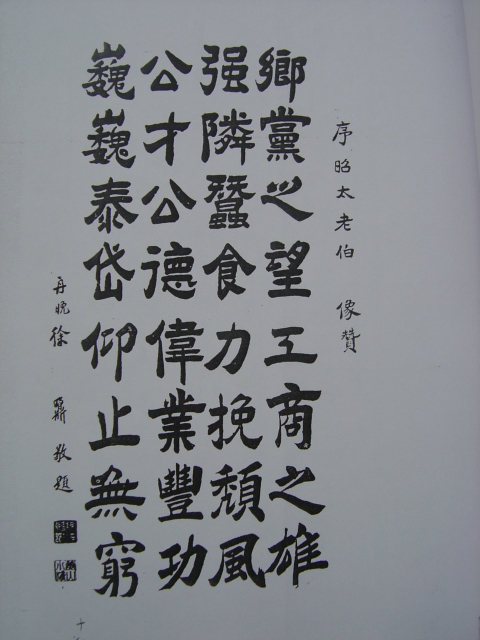 序昭太老伯 像贊
鄉黨之望工商之雄
强隣蠶食力挽頹風
公才公德偉業豐功
巍巍泰岱仰止無窮
再晚徐鼐敬題
十